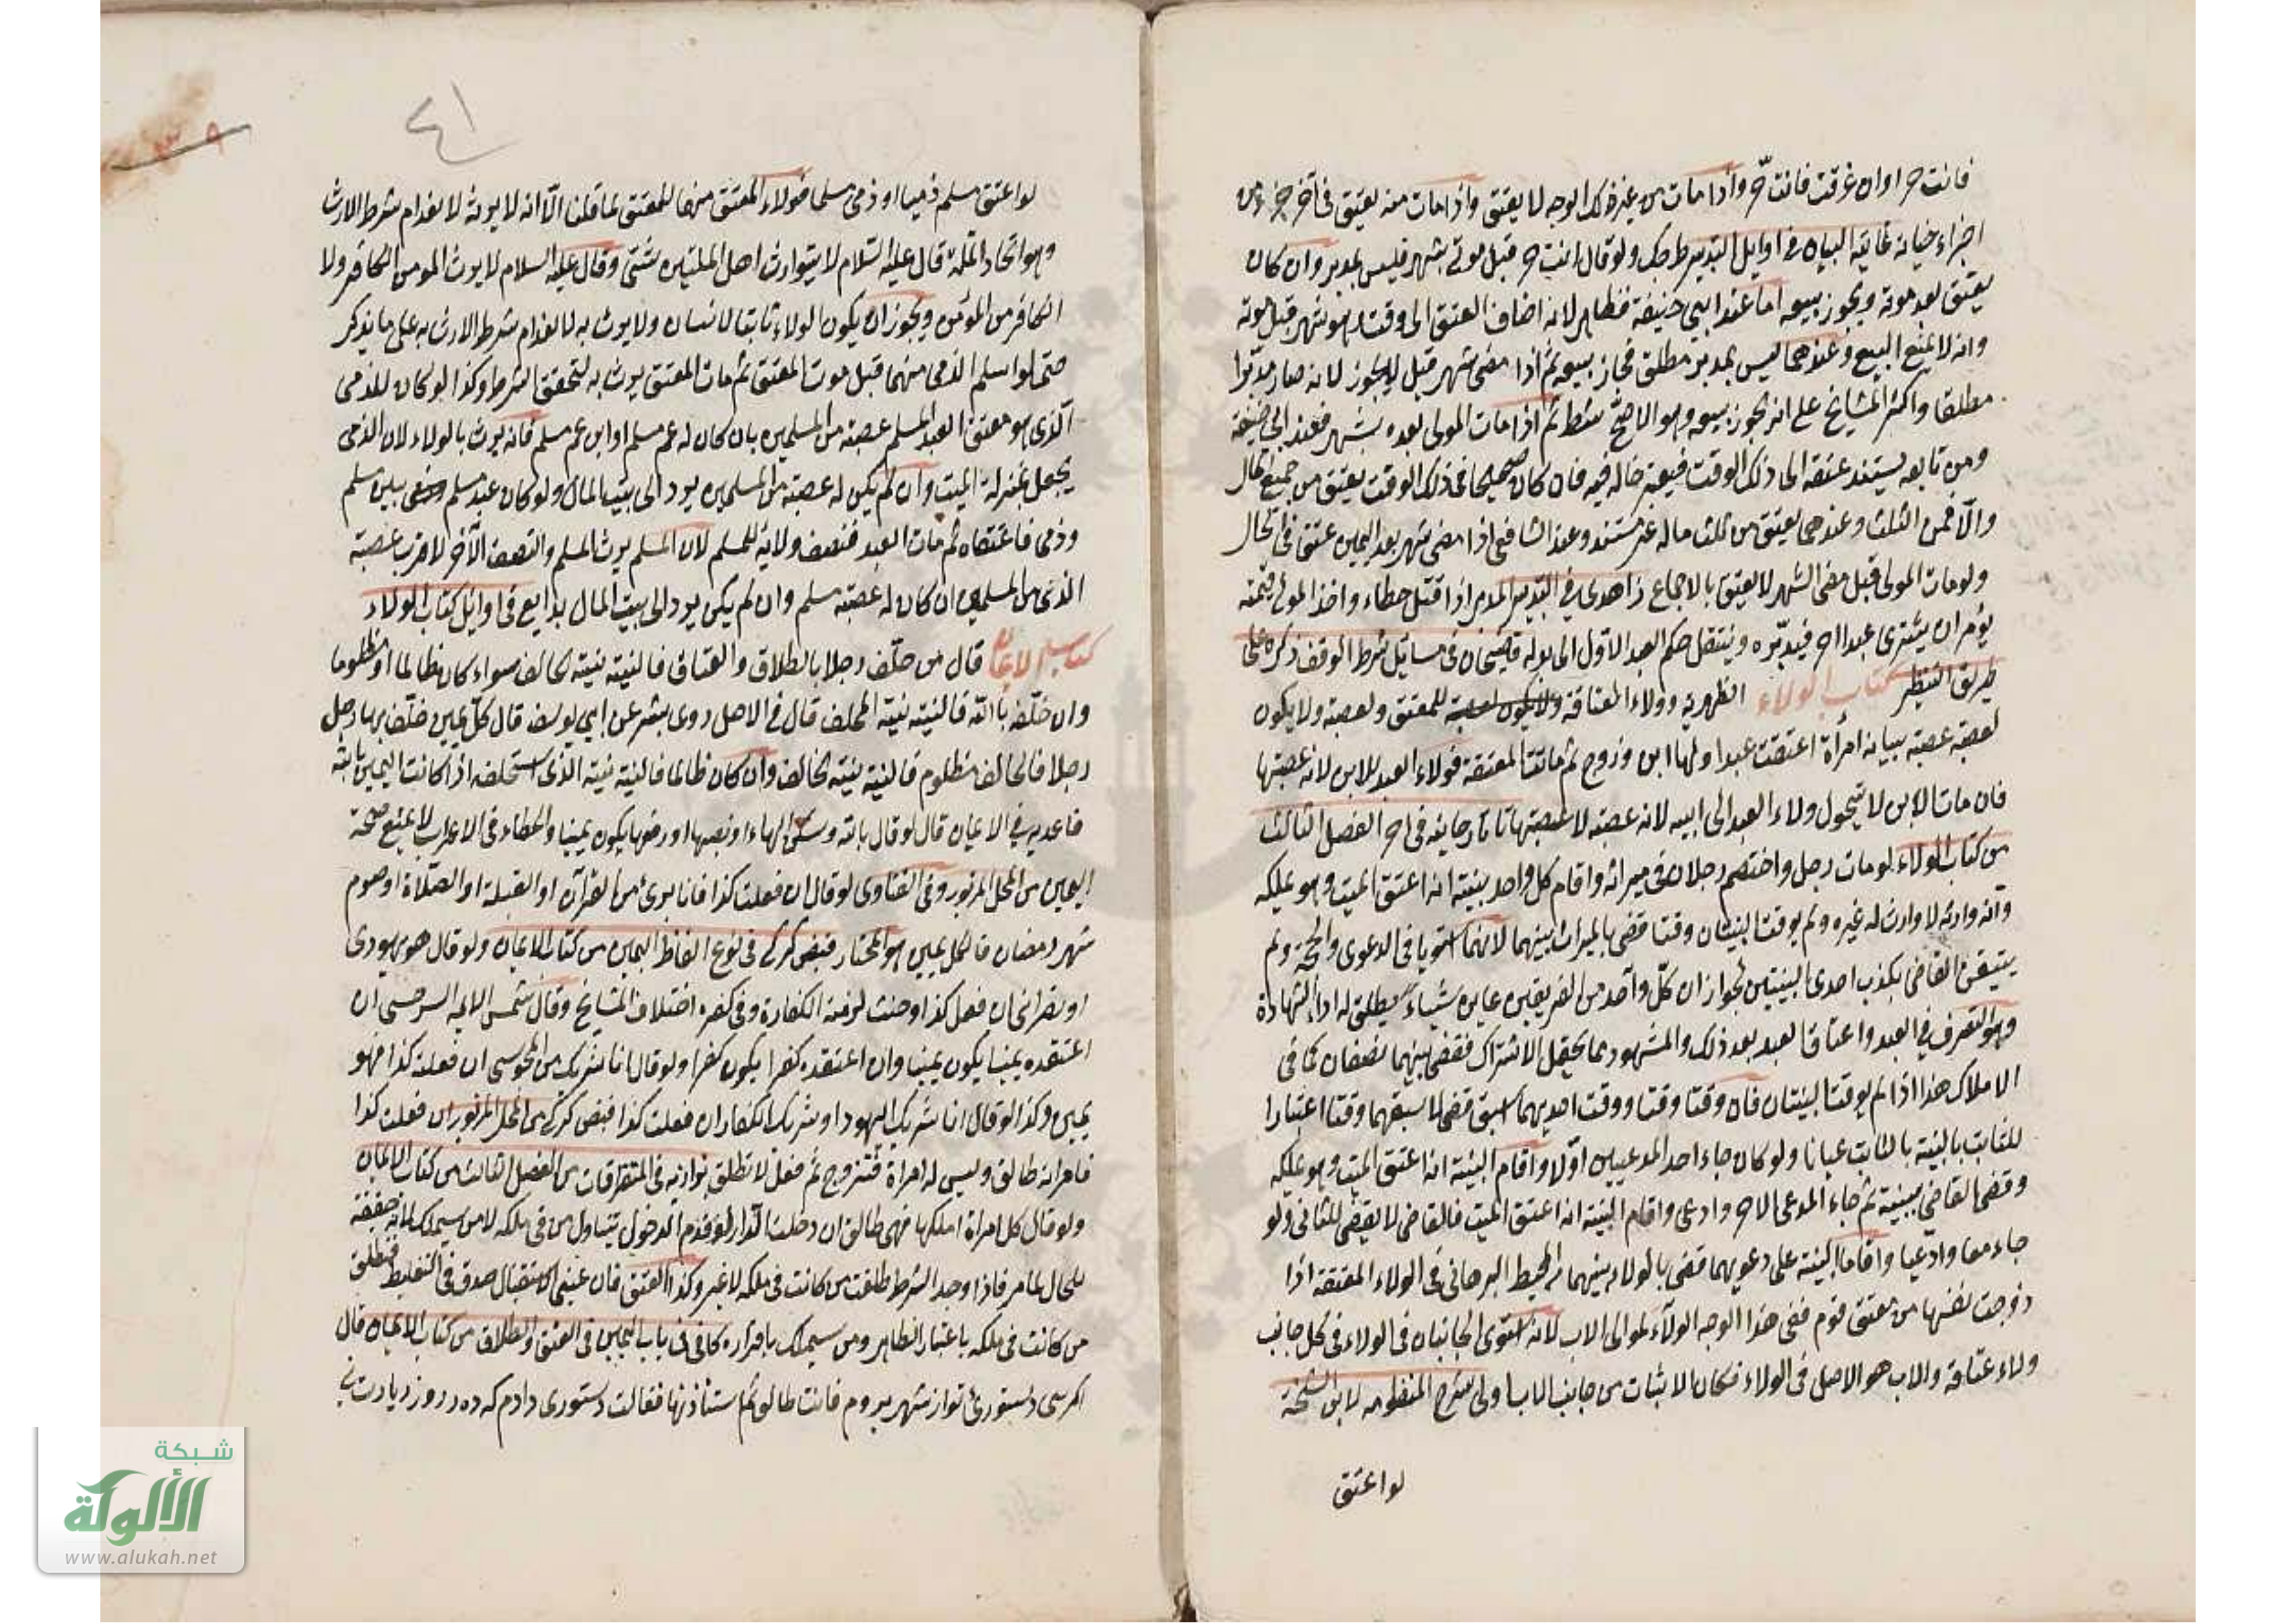 فانت حر او ان غرقت فانت حر واذا مات من غير ذلك الوجه لا يعتق واذا مات منه يعتق في آخر جزء من
اجزاء حياته غاية البيان في اوايل التدبير ولو قال انت حر قبل موتي بشهر فليس بمدبر وان كان
يعتق بعد موته ويجوز بيعه اما عند ابي حنيفة فظاهر لانه اضاف العتق الى وقت هو شهر قبل موته
وانه لا يمنع البيع وعندهما ليس بمدبر مطلق فجاز بيعه ثم اذا مضى شهر قيل لا يجوز لانه صار مدبرا
مطلقا واكثر المشايخ على انه يجوز بيعه وهو الاصح ثم اذا مات المولى بعده بشهر فعند ابي حنيفة
ومن تابعه يستند عتقه الى ذلك الوقت فيعتبر حاله فيه فان كان صحيحا في ذلك الوقت يعتق من جميع المال
والا فمن الثلث وعندهما يعتق من ثلث ماله غير مستند وعند الشافعي اذا مضى شهر بعد اليمين عتق في الحال
ولو مات المولى قبل مضي الشهر لا يعتق بالاجماع زاهدي في التدبير المدبر اذا قتل خطاء واخذ المولى قيمته
يؤمر ان يشترى عبدا اخر فيدبره وينتقل حكم العبد الاول الى بدله قاضيخان في مسائل شرط الوقف ذكره على
طريق التنظير كتاب الولاء الظهيرية وولاء العتاقة للمعتق ولعصبته ولا يكون
لعصبة عصبته بيانه امرأة اعتقت عبدا ولها ابن وزوج ثم ماتت المعتقة فولاء العبد للابن لانه عصبتها
فان مات الابن لا يتحول ولاء العبد الى ابيه لانه عصبة لا عصبتها تاتارخانيه في اخر الفصل الثالث
من كتاب الولاء لو مات رجل واختصم رجلان في ميراثه واقام كل واحد بينة انه اعتق الميت وهو يملكه
وانه وارثه لا وارث له غيره ولم يوقت البينتان وقتا قضى بالميراث بينهما لانهما استويا في الدعوى والحجة ولم
يتيقن القاضي بكذب احدى البينتين لجواز ان كل واحد من الفريقين عاين شياء يطلق له اداء الشهادة
وهو التصرف في العبد واعتاق العبد بعد ذلك والمشهود مما يحتمل الاشتراك فقضى بينهما نصفان كما في
الاملاك هذا اذا لم يوقت البينتان فان وقتا وقتا ووقت احديهما اسبق قضى لاسبقهما وقتا اعتبارا
للثابت بالبينة بالثابت عيانا ولو كان جاء احد المدعيين اولا واقام البينة انه اعتق الميت وهو يملكه
وقضى القاضي ببينته ثم جاء المدعي الاخر وادعى واقام البينة انه اعتق الميت فالقاضي لا يقضي للثاني ولو
جاء معا وادعيا واقاما البينة على دعويهما قضى بالولاء بينهما المحيط البرهاني في الولاء المعتقة اذا
زوجت نفسها من معتق قوم ففي هذا الوجه الولاء لموالي الاب لانه استوى الجانبان في الولاء في كل جانب
ولاء عتاقة والاب هو الاصل في الولاء فكان الاثبات من جانب الاب اولى شرح المنظومه لابن الشحنة
لو اعتق
٤١
لو اعتق مسلم ذميا او ذمي مسلما فولاء المعتق منهما للمعتق لما قلنا الا انه لا يرث لانعدام شرط الارث
وهو اتحاد الملة قال عليه السلام لا يتوارث اهل الملتين شتى وقال عليه السلام لا يرث المومن الكافر ولا
الكافر من المؤمن ويجوز ان يكون الولاء ثابتا لانسان ولا يرث به لانعدام شرط الارث به على ما يذكر
حتى لو اسلم الذمي منهما قبل موت المعتق ثم مات المعتق يرث به لتحقق الشرط وكذا لو كان للذمي
الذي هو معتق العبد المسلم عصبة من المسلمين بان كان له عم مسلم او ابن عم مسلم فانه يرث بالولاء لان الذمي
يجعل بمنزلة الميت وان لم يكن له عصبة من المسلمين يرد الى بيت المال ولو كان عبد مسلم بين مسلم
وذمي فاعتقاه ثم مات العبد فنصف ولايه للمسلم لان المسلم يرث المسلم والنصف الآخر لاقرب عصبة
الذمي من المسلمين ان كان له عصبة مسلم وان لم يكن يرد الى بيت المال بدايع في اوائل كتاب الولاء
كتاب الايمان قال من حلف رجلا بالطلاق والعتاق فالنية نية الحالف سواء كان ظالما او مظلوما
وان حلف بالله فالنية نية المحلف قال في الاصل روى بشر عن ابي يوسف قال كل يمين حلف بها رجل
رجلا فالحالف مظلوم فالنية نية الحالف وان كان ظالما فالنية نية الذي استحلفه اذا كانت اليمين بالله
قاعديه في الايمان قال لو قال بالله وسكن الهاء او نصبها او رفعها يكون يمينا والخطاء في الاعراب لا يمنع صحة
اليمين من المحل المزبور وفي الفتاوى لو قال ان فعلت كذا فانا برئ من القرآن او القبلة او الصلاة او صوم
شهر رمضان فالكل يمين هو المختار فيض كركي في نوع الفاظ اليمين من كتاب الايمان ولو قال هو يهودي
او نصراني ان فعل كذا وحنث لزمته الكفارة وفي كفره اختلاف المشايخ وقال شمس الايمه السرخسي ان
اعتقده يمينا يكون يمينا وان اعتقده كفرا يكون كفرا ولو قال انا شريك من المجوسي ان فعلت كذا فهو
يمين وكذا لو قال انا شريك اليهود او شريك الكفار ان فعلت كذا فيض كركي من المحل المزبور ان فعلت كذا
فامراته طالق وليس له امراة فتزوج ثم فعل لا تطلق بزازيه في المتفرقات من الفصل الثالث من كتاب الايمان
ولو قال كل امراة املكها فهي طالق ان دخلت الدار لو قدم الدخول يتناول من في ملكه لا من سيملك لانه حقيقة
للحال لما مر فاذا وجد الشرط طلقت من كانت في ملكه لا غير وكذا العتق فان عنى الاستقبال صدق في التغليظ فتطلق
من كانت في ملكه باعتبار الظاهر ومن سيملك باقراره كافي في باب اليمين في العتق والطلاق من كتاب الايمان قال
اكر بي دستوري تو از شهر بروم فانت طالق ثم استاذنها فقالت دستوري دادم كه ده روز
شبكة
الألوكة
www.alukah.net